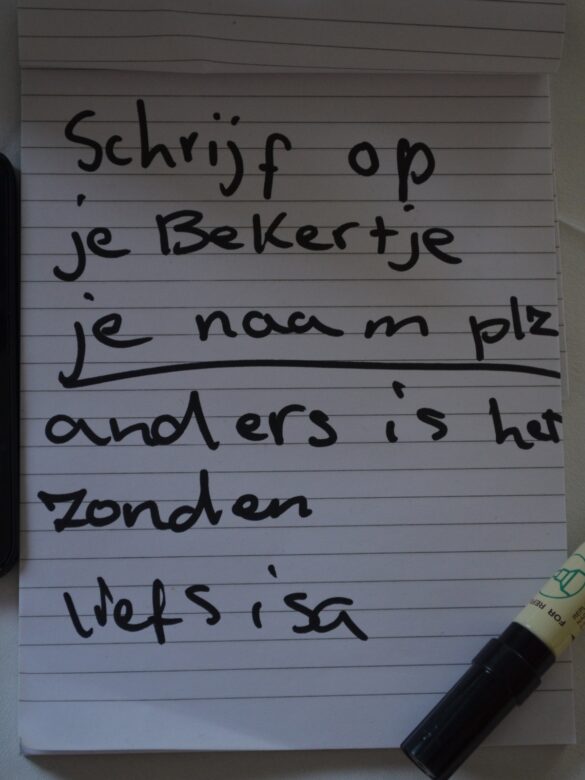 Schrijf op
je Bekertje
je naam plz
anders is het
zonden
liefs isa
FOR REF